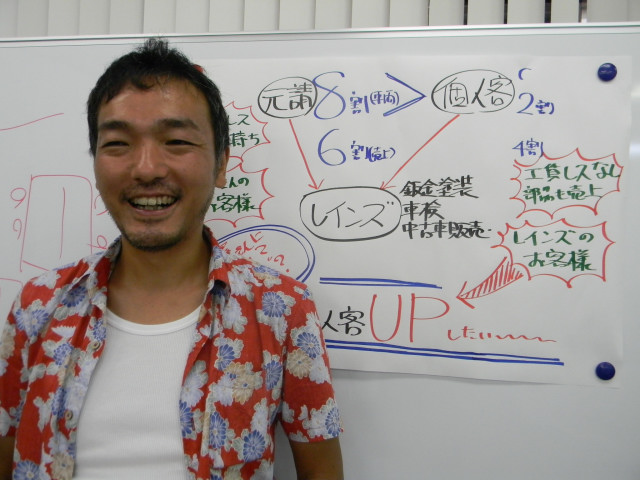 元請 8割(車両) > 個人客 2割
6割(売上) 4割
レインズ
鈑金塗装
車検
中古車販売
工賃レスなし
部品も売上
レインズの
お客様
ス
持ち
んの
客様
人客UPしたい〜〜